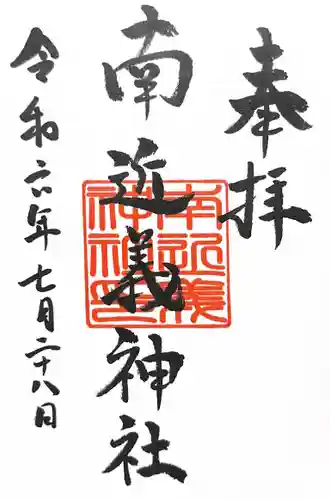 奉拝
南近義神社
南近義
神社印
令和六年七月二十八日